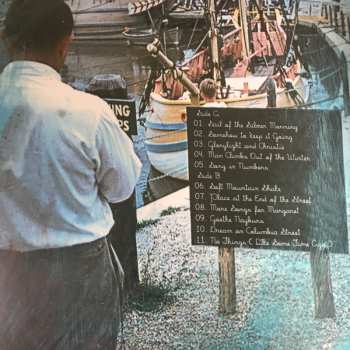 NING
PS
Side A
01. of the Silver Morning
02. Somehow to keep it Going
03. Glorylight and Christie
04. Man Climbs Out of the Winter
05. Song in Numbers
Side B
06. Soft Mountain Shake
07. Place at the End of the Street
08. More Songs for Margaret
09. Goethe Nayburs
10. Dream on Columbia Street
11. No Things ( Like Some Time Ago )